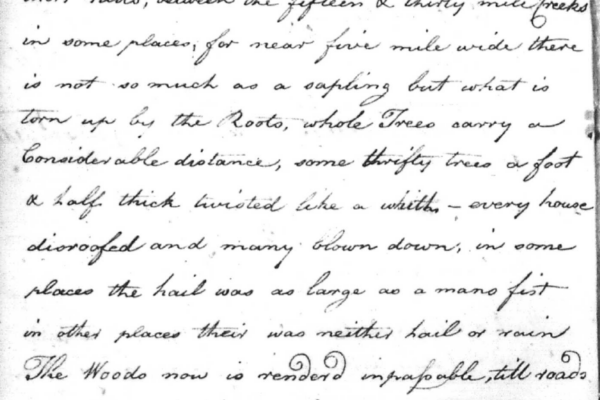 between the fifteen & thirty mile Creeks
in some places, for near five mile wide there
is not so much as a sapling but what is
torn up by the Roots, whole Trees carry a
Considerable distance, some thrifty trees a foot
& half thick twisted like a whith - every house
disroofed and many blown down; in some
places the hail was as large as a mans fist
in other places their was neither hail or rain
The Woods now is renderd impassable, till roads